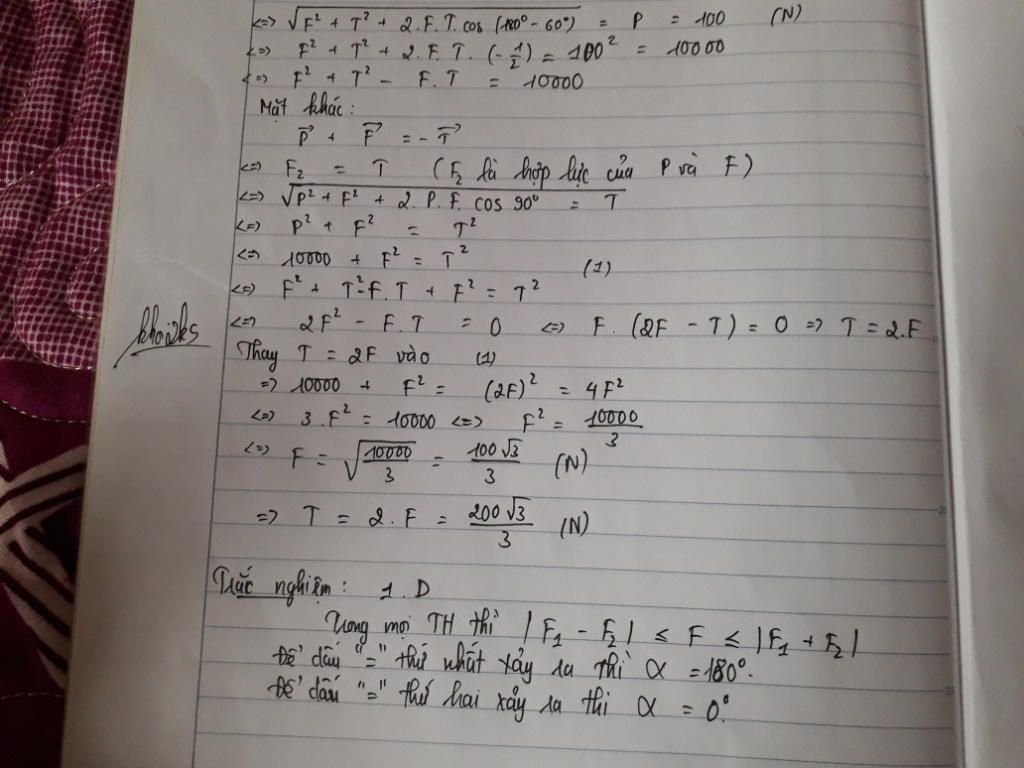 <=> √(F² + T² + 2.F.T.cos (180° - 60°)) = P = 100 (N)
<=> F² + T² + 2.F.T. (-1/2) = 100² = 10000
<=> F² + T² - F.T = 10000
Mặt khác:
P→ + F→ = - T→
<=> F₂ = T (F₂ là hợp lực của P và F)
<=> √(P² + F² + 2.P.F.cos 90°) = T
<=> P² + F² = T²
<=> 10000 + F² = T² (1)
<=> F² + T² - F.T + F² = T²
<=> 2F² - F.T = 0 <=> F.(2F - T) = 0 => T = 2.F
Thay T = 2F vào (1)
=> 10000 + F² = (2F)² = 4F²
<=> 3.F² = 10000 <=> F² = 10000/3
<=> F = √(10000/3) = 100√3/3 (N)
=> T = 2.F = 200√3/3 (N)
Trắc nghiệm: 1.D
Trong mọi TH thì |F₁ - F₂| ≤ F ≤ |F₁ + F₂|
Để dấu "=" thứ nhất xảy ra thì α = 180°.
Để dấu "=" thứ hai xảy ra thì α = 0°.